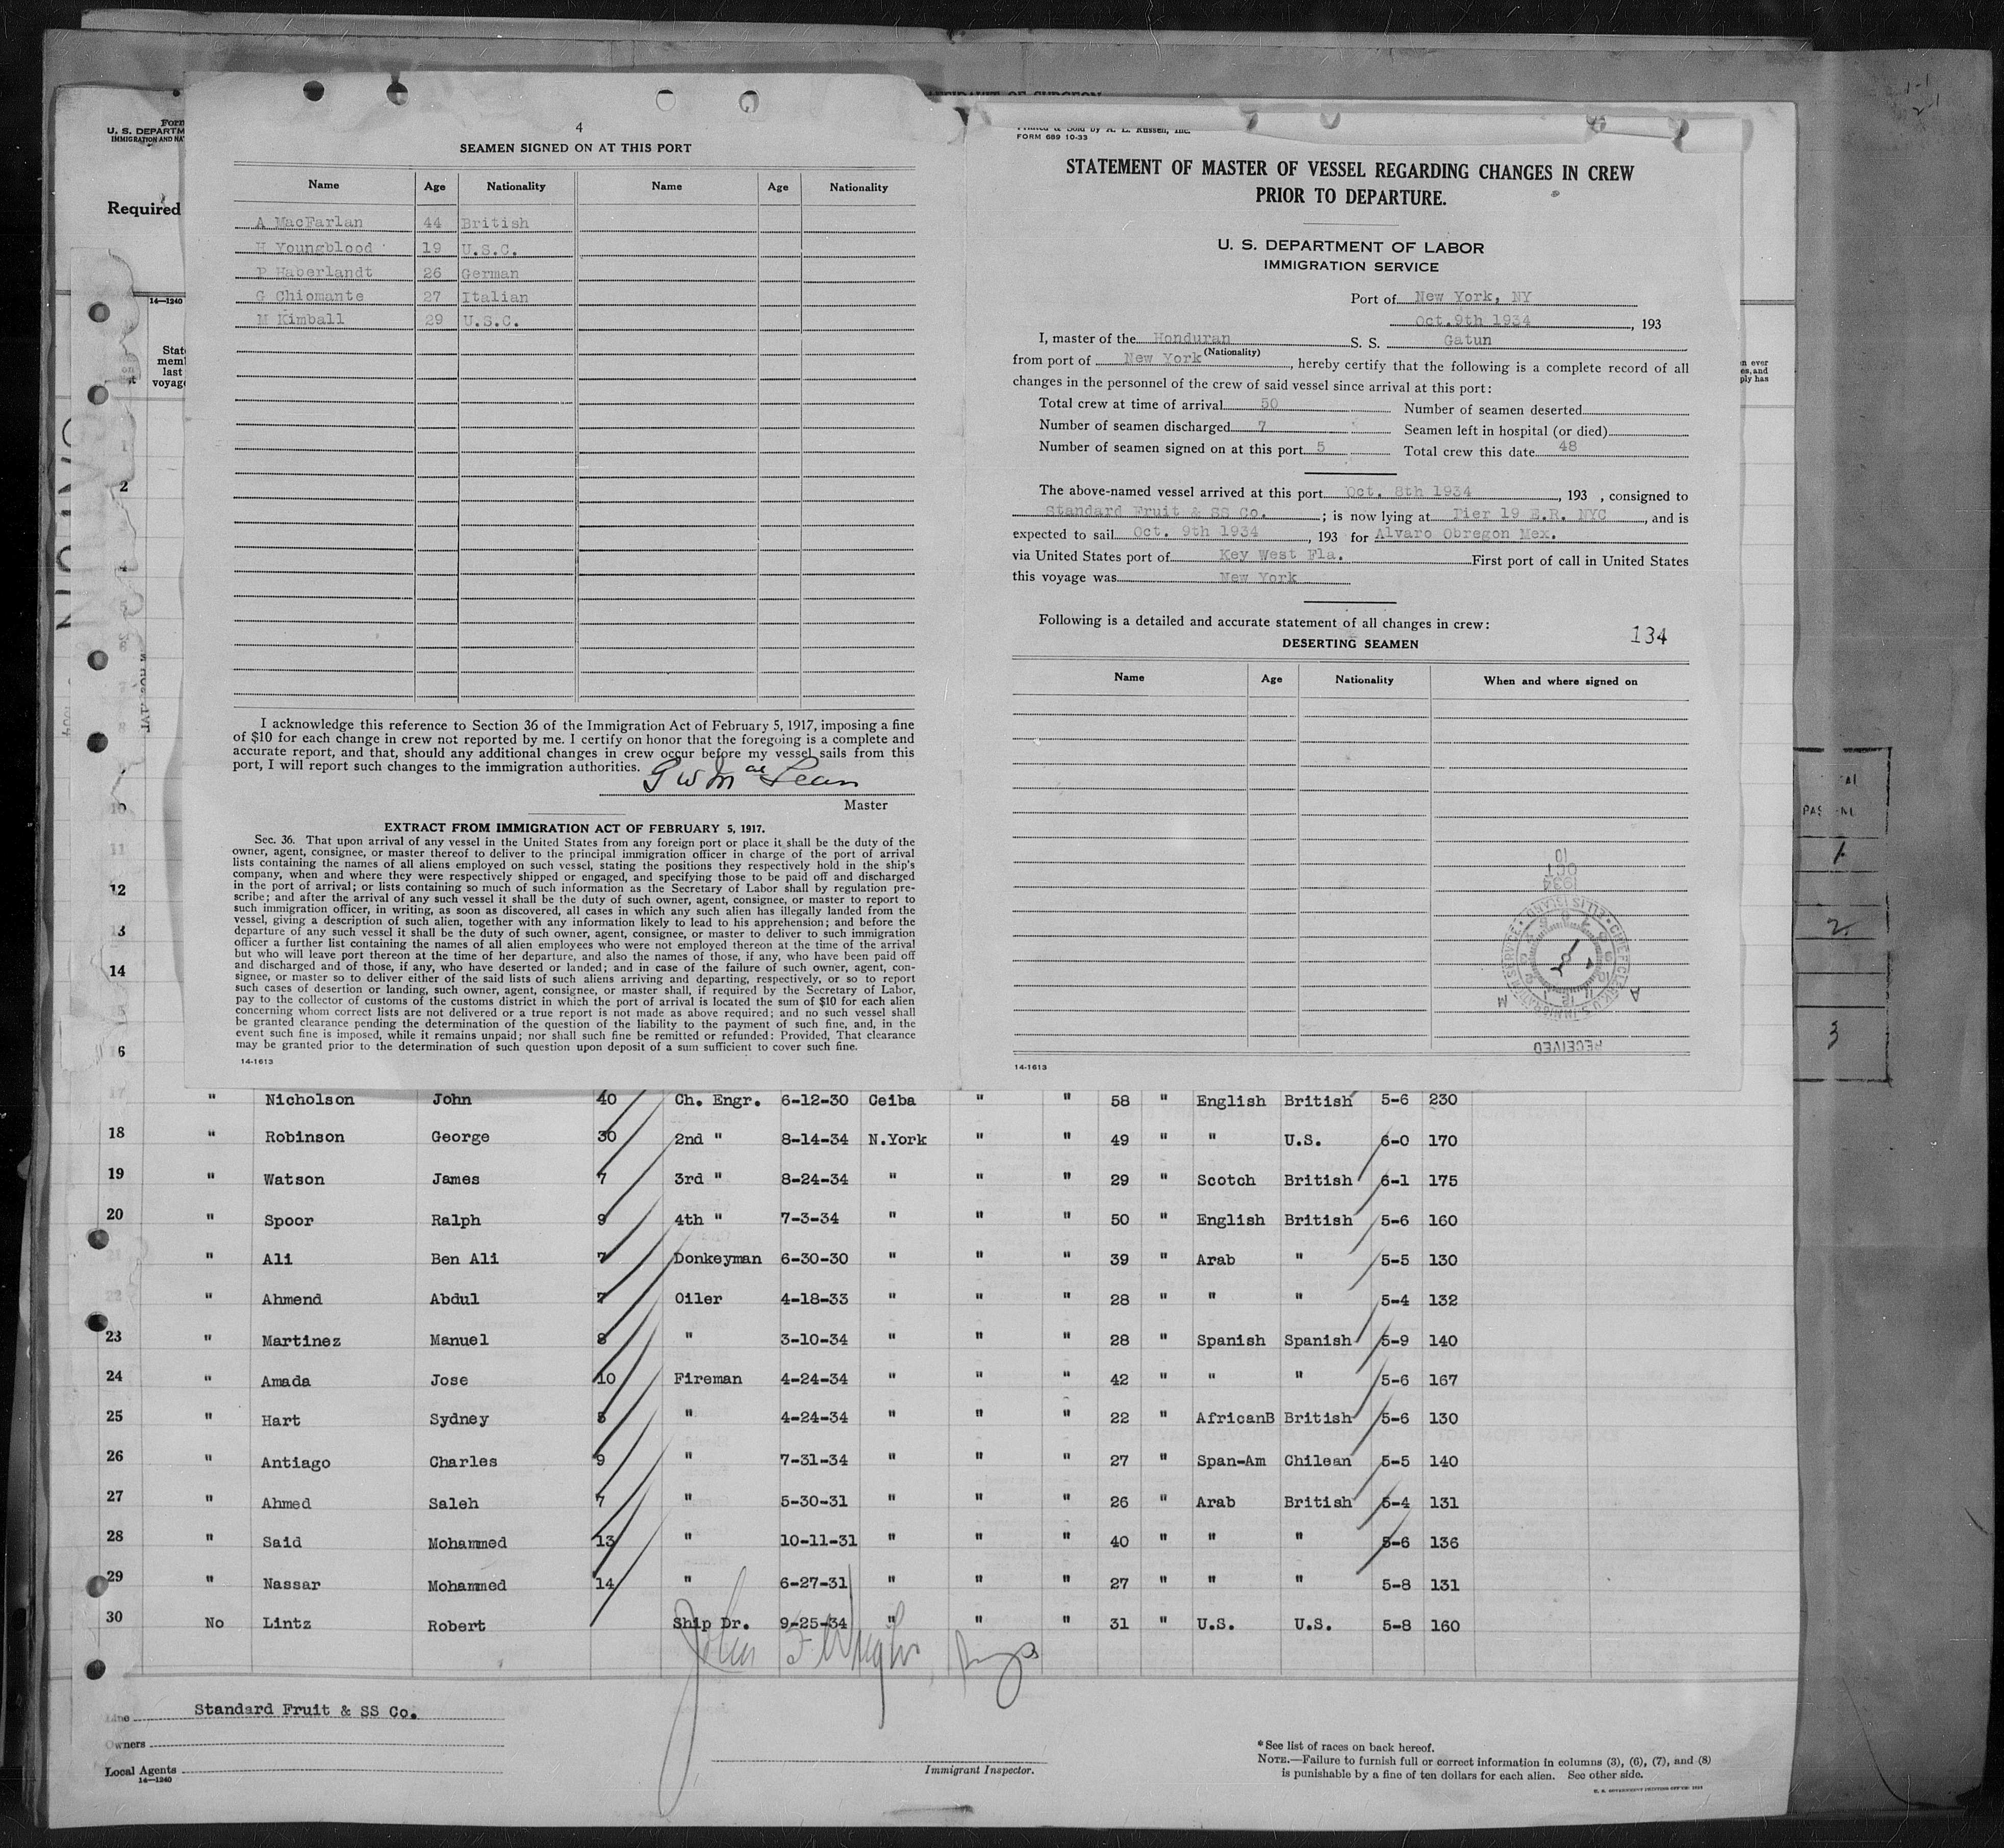 4
SEAMEN SIGNED ON AT THIS PORT
Name Age Nationality Name Age Nationality
A MacFarlan 44 British
H Youngblood 19 U.S.C.
P Haberlandt 26 German
G Chiomante 27 Italian
M Kimball 29 U.S.C.
I acknowledge this reference to Section 36 of the Immigration Act of February 5, 1917, imposing a fine
of $10 for each change in crew not reported by me. I certify on honor that the foregoing is a complete and
accurate report, and that, should any additional changes in crew occur before my vessel sails from this
port, I will report such changes to the immigration authorities.
G W MacLean
Master
EXTRACT FROM IMMIGRATION ACT OF FEBRUARY 5, 1917.
Sec. 36. That upon arrival of any vessel in the United States from any foreign port or place it shall be the duty of the
owner, agent, consignee, or master thereof to deliver to the principal immigration officer in charge of the port of arrival
lists containing the names of all aliens employed on such vessel, stating the positions they respectively hold in the ship's
company, when and where they were respectively shipped or engaged, and specifying those to be paid off and discharged
in the port of arrival; or lists containing so much of such information as the Secretary of Labor shall by regulation pre-
scribe; and after the arrival of any such vessel it shall be the duty of such owner, agent, consignee, or master to report to
such immigration officer, in writing, as soon as discovered, all cases in which any such alien has illegally landed from the
vessel, giving a description of such alien, together with any information likely to lead to his apprehension; and before the
departure of any such vessel it shall be the duty of such owner, agent, consignee, or master to deliver to such immigration
officer a further list containing the names of all alien employees who were not employed thereon at the time of the arrival
but who will leave port thereon at the time of her departure, and also the names of those, if any, who have been paid off
and discharged and of those, if any, who have deserted or landed; and in case of the failure of such owner, agent, con-
signee, or master so to deliver either of the said lists of such aliens arriving and departing, respectively, or so to report
such cases of desertion or landing, such owner, agent, consignee, or master shall, if required by the Secretary of Labor,
pay to the collector of customs of the customs district in which the port of arrival is located the sum of $10 for each alien
concerning whom correct lists are not delivered or a true report is not made as above required; and no such vessel shall
be granted clearance pending the determination of the question of the liability to the payment of such fine, and, in the
event such fine is imposed, while it remains unpaid; nor shall such fine be remitted or refunded: Provided, That clearance
may be granted prior to the determination of such question upon deposit of a sum sufficient to cover such fine.
14-1613
Printed & Sold by A. E. Russell, Inc.
FORM 689 10-33
STATEMENT OF MASTER OF VESSEL REGARDING CHANGES IN CREW
PRIOR TO DEPARTURE.
U. S. DEPARTMENT OF LABOR
IMMIGRATION SERVICE
Port of New York, NY
Oct.9th 1934, 193
I, master of the Honduran S. S. Gatun
(Nationality)
from port of New York, hereby certify that the following is a complete record of all
changes in the personnel of the crew of said vessel since arrival at this port:
Total crew at time of arrival 50 Number of seamen deserted
Number of seamen discharged 7 Seamen left in hospital (or died)
Number of seamen signed on at this port 5 Total crew this date 48
The above-named vessel arrived at this port Oct. 8th 1934, 193 , consigned to
Standard Fruit & SS Co. ; is now lying at Pier 19 E.R. NYC, and is
expected to sail Oct. 9th 1934, 193 for Alvaro Obregon Mex.
via United States port of Key West Fla. First port of call in United States
this voyage was New York
Following is a detailed and accurate statement of all changes in crew:
134
DESERTING SEAMEN
Name Age Nationality When and where signed on
10
OCT
1934
RECEIVED
14-1613
AFFIDAVIT OF SURGEON
Form
U. S. DEPARTM
IMMIGRATION AND NA
Required
14-1240
17 " Nicholson John 40 Ch. Engr. 6-12-30 Ceiba " " 58 " English British 5-6 230
18 " Robinson George 30 2nd " 8-14-34 N.York " " 49 " " U.S. 6-0 170
19 " Watson James 7 3rd " 8-24-34 " " " 29 " Scotch British 6-1 175
20 " Spoor Ralph 9 4th " 7-3-34 " " " 50 " English British 5-6 160
21 " Ali Ben Ali 7 Donkeyman 6-30-30 " " " 39 " Arab " 5-5 130
22 " Ahmend Abdul 7 Oiler 4-18-33 " " " 28 " " " 5-4 132
23 " Martinez Manuel 8 " 3-10-34 " " " 28 " Spanish Spanish 5-9 140
24 " Amada Jose 10 Fireman 4-24-34 " " " 42 " " " 5-6 167
25 " Hart Sydney 5 " 4-24-34 " " " 22 " AfricanB British 5-6 130
26 " Antiago Charles 9 " 7-31-34 " " " 27 " Span-Am Chilean 5-5 140
27 " Ahmed Saleh 7 " 5-30-31 " " " 26 " Arab British 5-4 131
28 " Said Mohammed 13 " 10-11-31 " " " 40 " " " 5-6 136
29 " Nassar Mohammed 14 " 6-27-31 " " " 27 " " " 5-8 131
30 No Lintz Robert Ship Dr. 9-25-34 " " " 31 " U.S. U.S. 5-8 160
Line Standard Fruit & SS Co.
Owners
Local Agents
14-1240
Immigrant Inspector.
*See list of races on back hereof.
NOTE.—Failure to furnish full or correct information in columns (3), (6), (7), and (8)
is punishable by a fine of ten dollars for each alien. See other side.